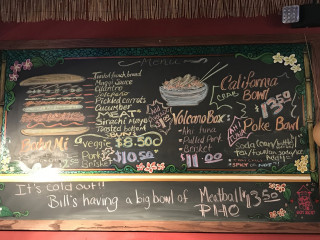 Menu
Toasted french bread
Mayo / Sauce
Cilantro
Jalapeno
Pickled carrots
Cucumber
MEAT
Sirachi Mayo
Toasted bottom
Banh Mi
Veggie $8.50
Pork
$10.50
Volcano Box
Ahi tuna
Pulled Pork
Brisket
$11.00
California
Bowl
CRAB
$13.50
Poke Bowl
AHI TUNA
Soda (can/bottle)
It's cold out!!
Bill's having a big bowl of Meatball $13.50
PHO